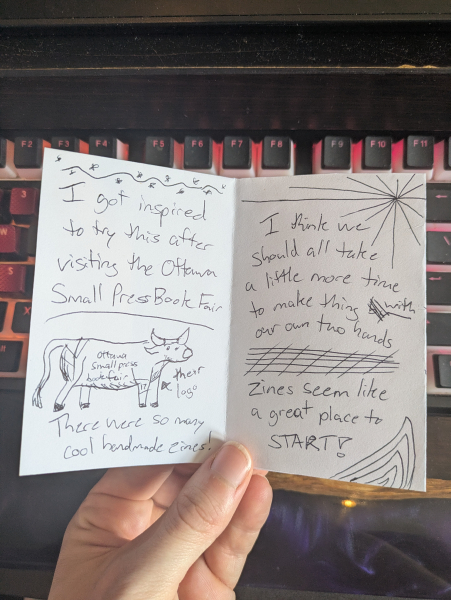 F2
F3
F4
F5
F6
F7
F8
F9
F10
F11
I got inspired
to try this after
visiting the Ottawa
Small Press Book Fair
Ottawa
Small press
book fair
their
logo
There were so many
cool handmade zines.
I think we
should all take
a little more time
to make thing with
our own two hands
Zines seem like
a great place to
START!